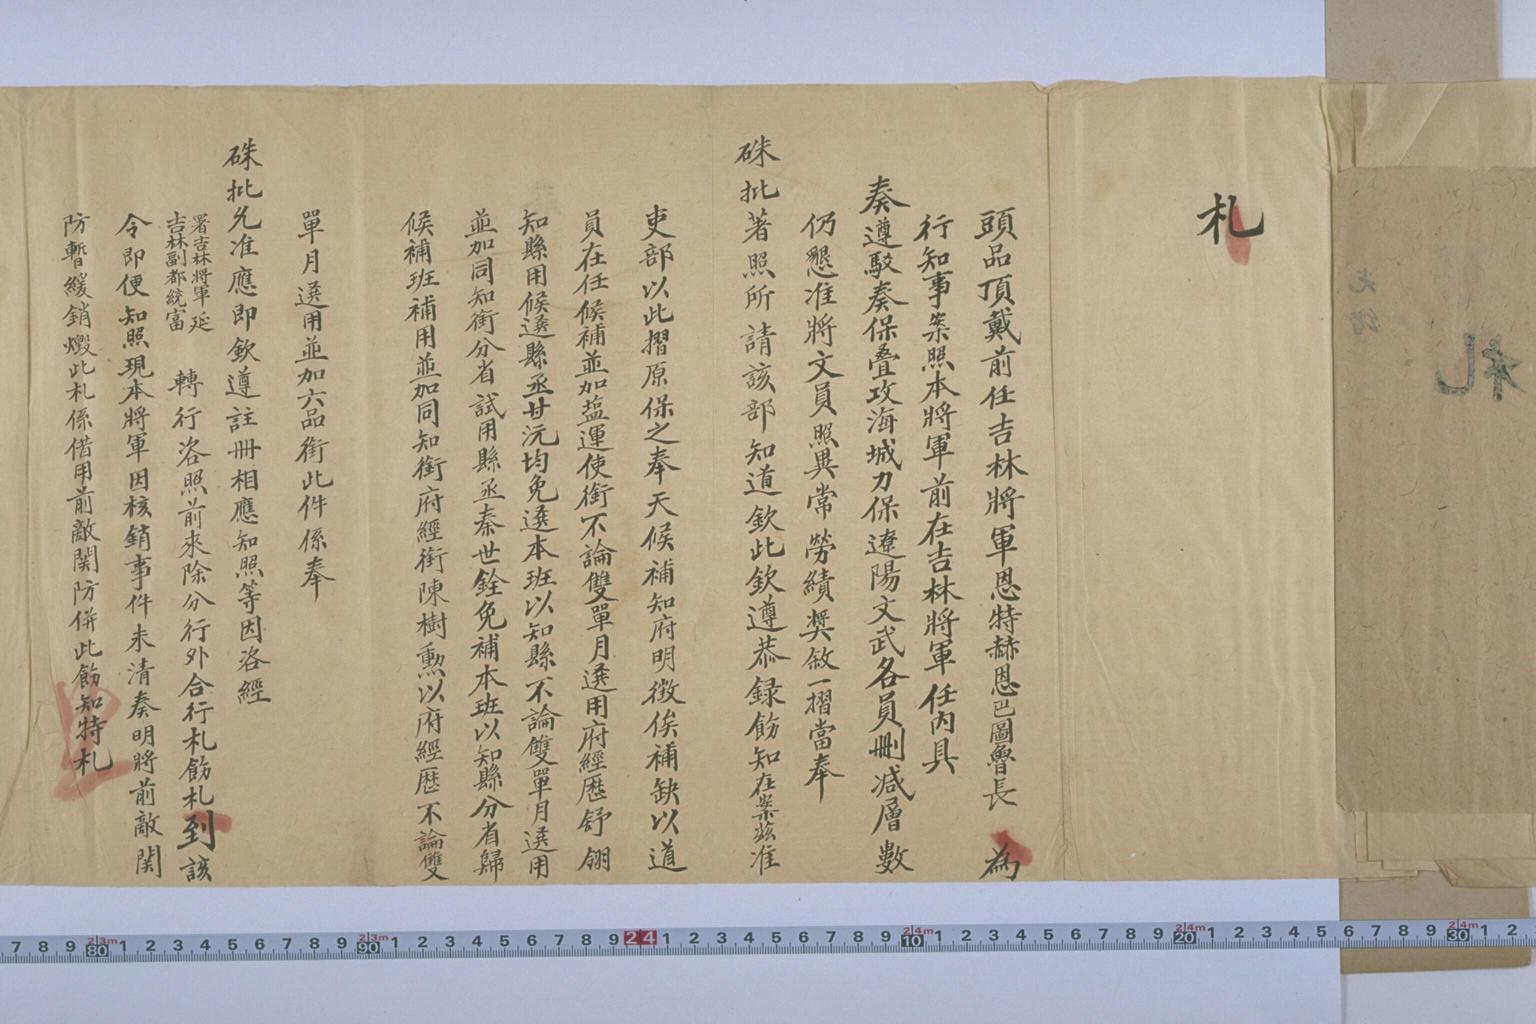 札
頭品頂戴前任吉林將軍恩特赫恩巴圖魯長 為
行知事案照本將軍前在吉林將軍任內具
奏遵駁奏保疊攻海城力保遼陽文武各員刪減層數
仍懇准將文員照異常勞績獎敘一摺當奉
硃批著照所請該部知道欽此欽遵恭録飭知在案茲准
吏部以此摺原保之奉天候補知府明徵俟補缺以道
員在任候補並加鹽運使銜不論雙單月選用府經歷舒翎
知縣用候選縣丞甘沅均免選本班以知縣不論雙單月選用
並加同知銜分省試用縣丞秦世銓免補本班以知縣分省歸
候補班補用並加同知銜府經銜陳樹勲以府經歷不論雙
單月選用並加六品銜此件係奉
硃批允准應即欽遵註冊相應知照等因洛經
署吉林將軍延
吉林副都統富
轉行洛照前來除分行外合行札飭札到該
令即便知照現本將軍因核銷事件未清奏明將前敵関
防暫緩銷燬此札係借用前敵関防併此飭知特札
札
光緒
7 8 9 80 1 2 3 4 5 6 7 8 9 90 1 2 3 4 5 6 7 8 9 24 1 2 3 4 5 6 7 8 9 10 1 2 3 4 5 6 7 8 9 20 1 2 3 4 5 6 7 8 9 30 1 2